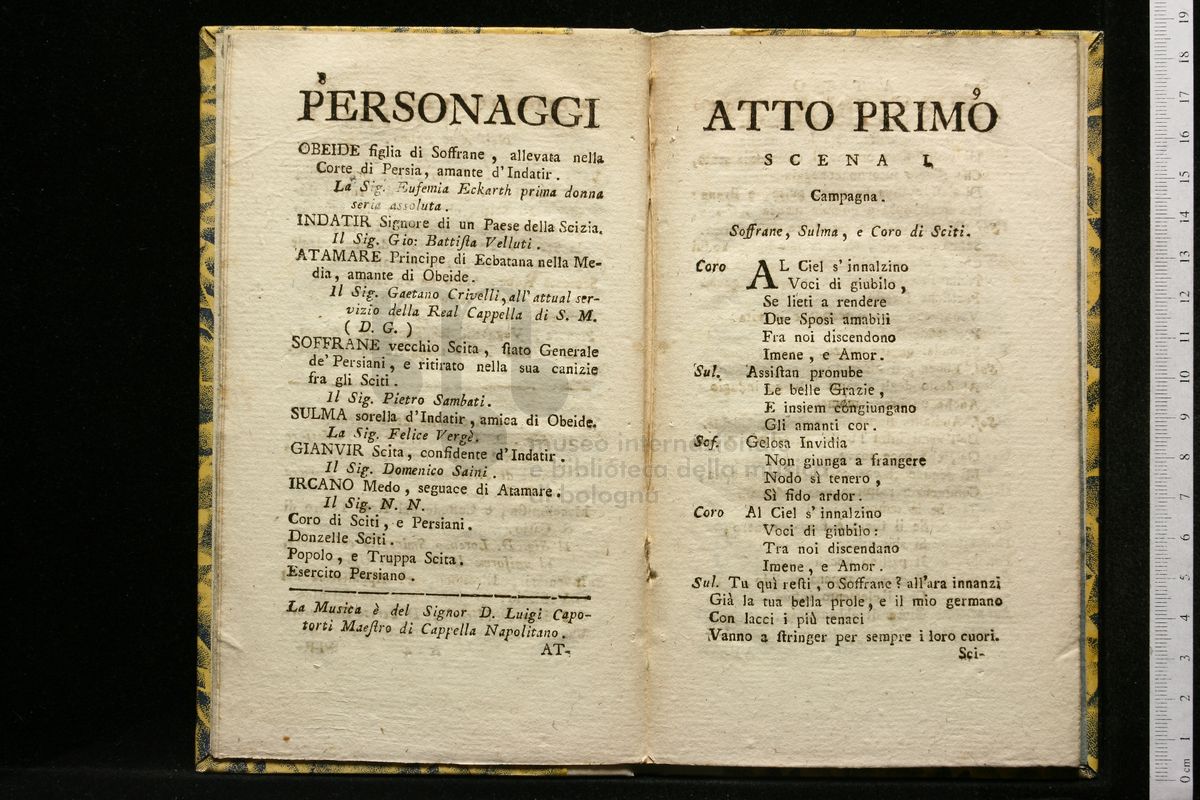 8
PERSONAGGI
OBEIDE figlia di Soffrane, allevata nella
Corte di Persia, amante d'Indatir.
La Sig. Eufemia Eckarth prima donna
seria assoluta.
INDATIR Signore di un Paese della Scizia.
Il Sig. Gio: Battista Velluti.
ATAMARE Principe di Ecbatana nella Me-
dia, amante di Obeide.
Il Sig. Gaetano Crivelli, all'attual ser-
vizio della Real Cappella di S. M.
( D. G. )
SOFFRANE vecchio Scita, stato Generale
de' Persiani, e ritirato nella sua canizie
fra gli Sciti.
Il Sig. Pietro Sambati.
SULMA sorella d'Indatir, amica di Obeide.
La Sig. Felice Vergè.
GIANVIR Scita, confidente d'Indatir.
Il Sig. Domenico Saini.
IRCANO Medo, seguace di Atamare.
Il Sig. N. N.
Coro di Sciti, e Persiani.
Donzelle Sciti.
Popolo, e Truppa Scita.
Esercito Persiano.
La Musica è del Signor D. Luigi Capo-
torti Maestro di Cappella Napolitano.
AT-
9
ATTO PRIMO
SCENA I.
Campagna.
Soffrane, Sulma, e Coro di Sciti.
Coro AL Ciel s'innalzino
Voci di giubilo,
Se lieti a rendere
Due Sposi amabili
Fra noi discendono
Imene, e Amor.
Sul. Assistan pronube
Le belle Grazie,
E insiem congiungano
Gli amanti cor.
Sof. Gelosa Invidia
Non giunga a frangere
Nodo sì tenero,
Sì fido ardor.
Coro Al Ciel s'innalzino
Voci di giubilo:
Tra noi discendano
Imene, e Amor.
Sul. Tu quì resti, o Soffrane? all'ara innanzi
Già la tua bella prole, e il mio germano
Con lacci i più tenaci
Vanno a stringer per sempre i loro cuori.
Sci-
museo internazionale
e biblioteca della musica
di bologna
0 cm 1 2 3 4 5 6 7 8 9 10 11 12 13 14 15 16 17 18 19